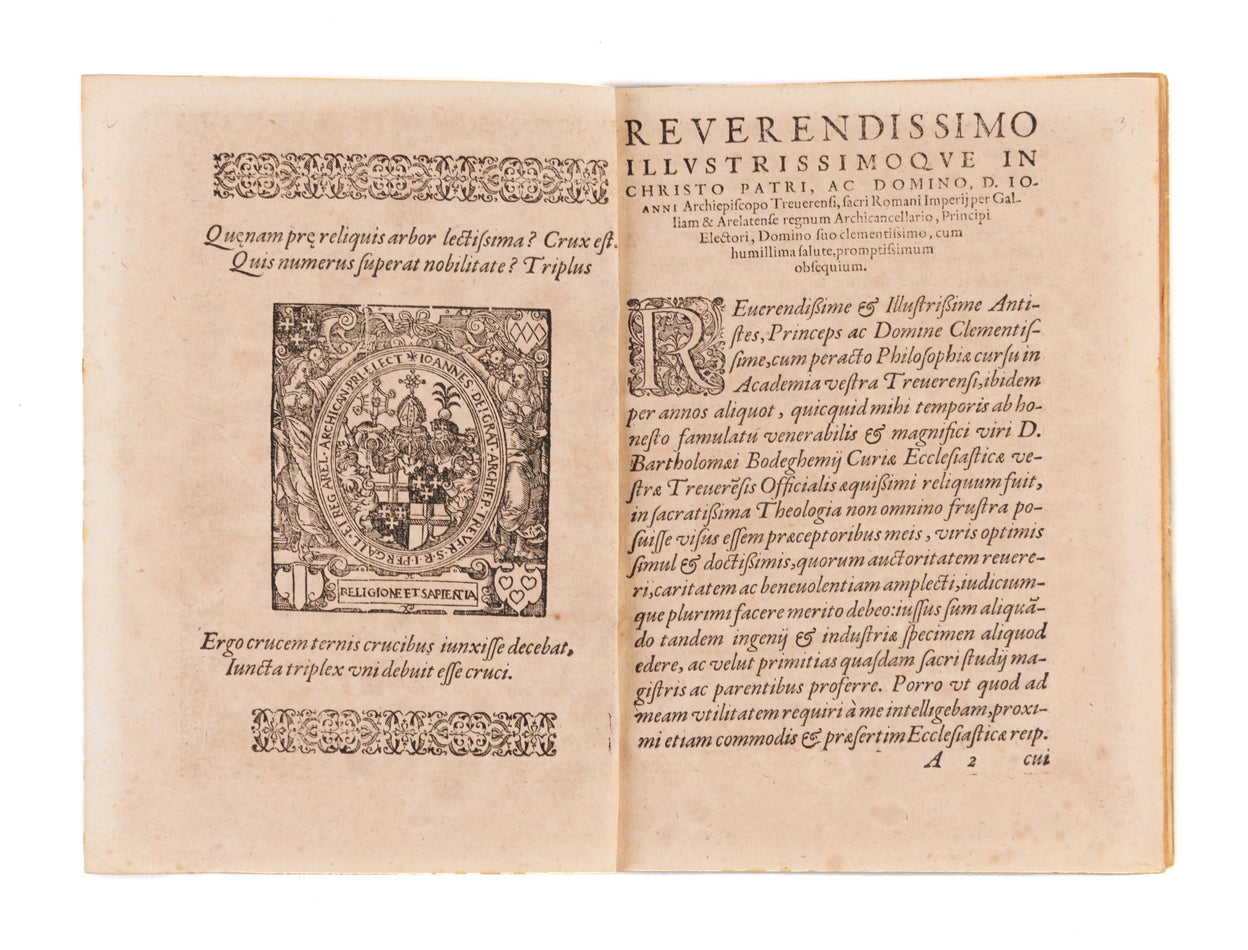 Quęnam prę reliquis arbor lectißima? Crux est.
Quis numerus superat nobilitate? Triplus
IOANNES. DEI. GRAT. ARCHIEP. TREVER. S. R. I. PER GALL. ET REG. AREL. ARCHICAN. PRI. ELECT
RELIGIONE ET SAPIENTIA
Ergo crucem ternis crucibus iunxisse decebat,
Iuncta triplex vni debuit esse cruci.
3
REVERENDISSIMO
ILLVSTRISSIMOQVE IN
CHRISTO PATRI, AC DOMINO, D. IO-
ANNI Archiepiſcopo Treuerenſi, ſacri Romani Imperij per Gal-
liam & Arelatenſe regnum Archicancellario, Principi
Electori, Domino ſuo clementiſsimo, cum
humillima ſalute, promptiſsimum
obſequium.
REuerendißime & Illuſtrißime Anti-
ſtes, Princeps ac Domine Clementiſ-
ſime, cum peracto Philoſophiæ curſu in
Academia veſtra Treuerenſi, ibidem
per annos aliquot, quicquid mihi temporis ab ho-
neſto famulatú venerabilis & magnifici viri D.
Bartholomæi Bodeghemij Curiæ Eccleſiaſticæ ve-
ſtræ Treuerẽſis Officialis æquißimi reliquum fuit,
in ſacratißima Theologia non omnino fruſtra po-
ſuiſſe viſus eſſem præceptoribus meis, viris optimis
ſimul & doctißimis, quorum auctoritatem reuere-
ri, caritatem ac beneuolentiam amplecti, iudicium-
que plurimi facere merito debeo: iuſſus ſum aliquã-
do tandem ingenij & induſtriæ ſpecimen aliquod
edere, ac velut primitias quaſdam ſacri ſtudij ma-
giſtris ac parentibus proferre. Porro vt quod ad
meam vtilitatem requiri à me intelligebam, proxi-
mi etiam commodis & præſertim Eccleſiaſticæ reip.
A 2 cui